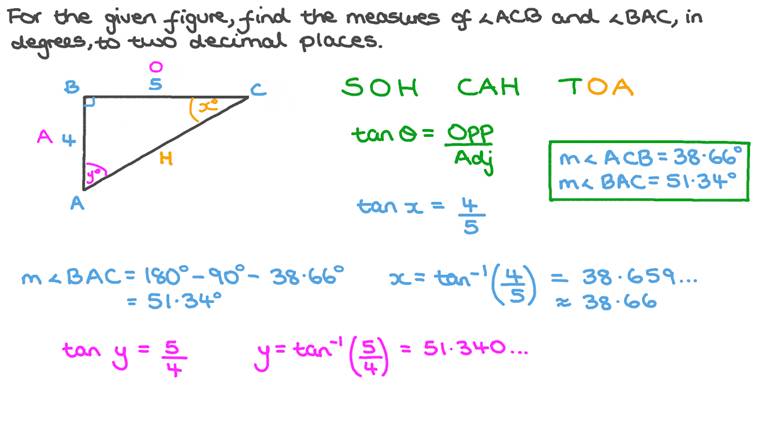 For the given figure, find the measures of ∠ACB and ∠BAC, in
degrees, to two decimal places.
O
B 5 C
x°
A 4
H
y°
A
SOH CAH TOA
tan θ = Opp/Adj
tan x = 4/5
m∠ACB = 38.66°
m∠BAC = 51.34°
m∠BAC = 180° - 90° - 38.66°
= 51.34°
x = tan⁻¹(4/5) = 38.659...
≈ 38.66
tan y = 5/4
y = tan⁻¹(5/4) = 51.340...